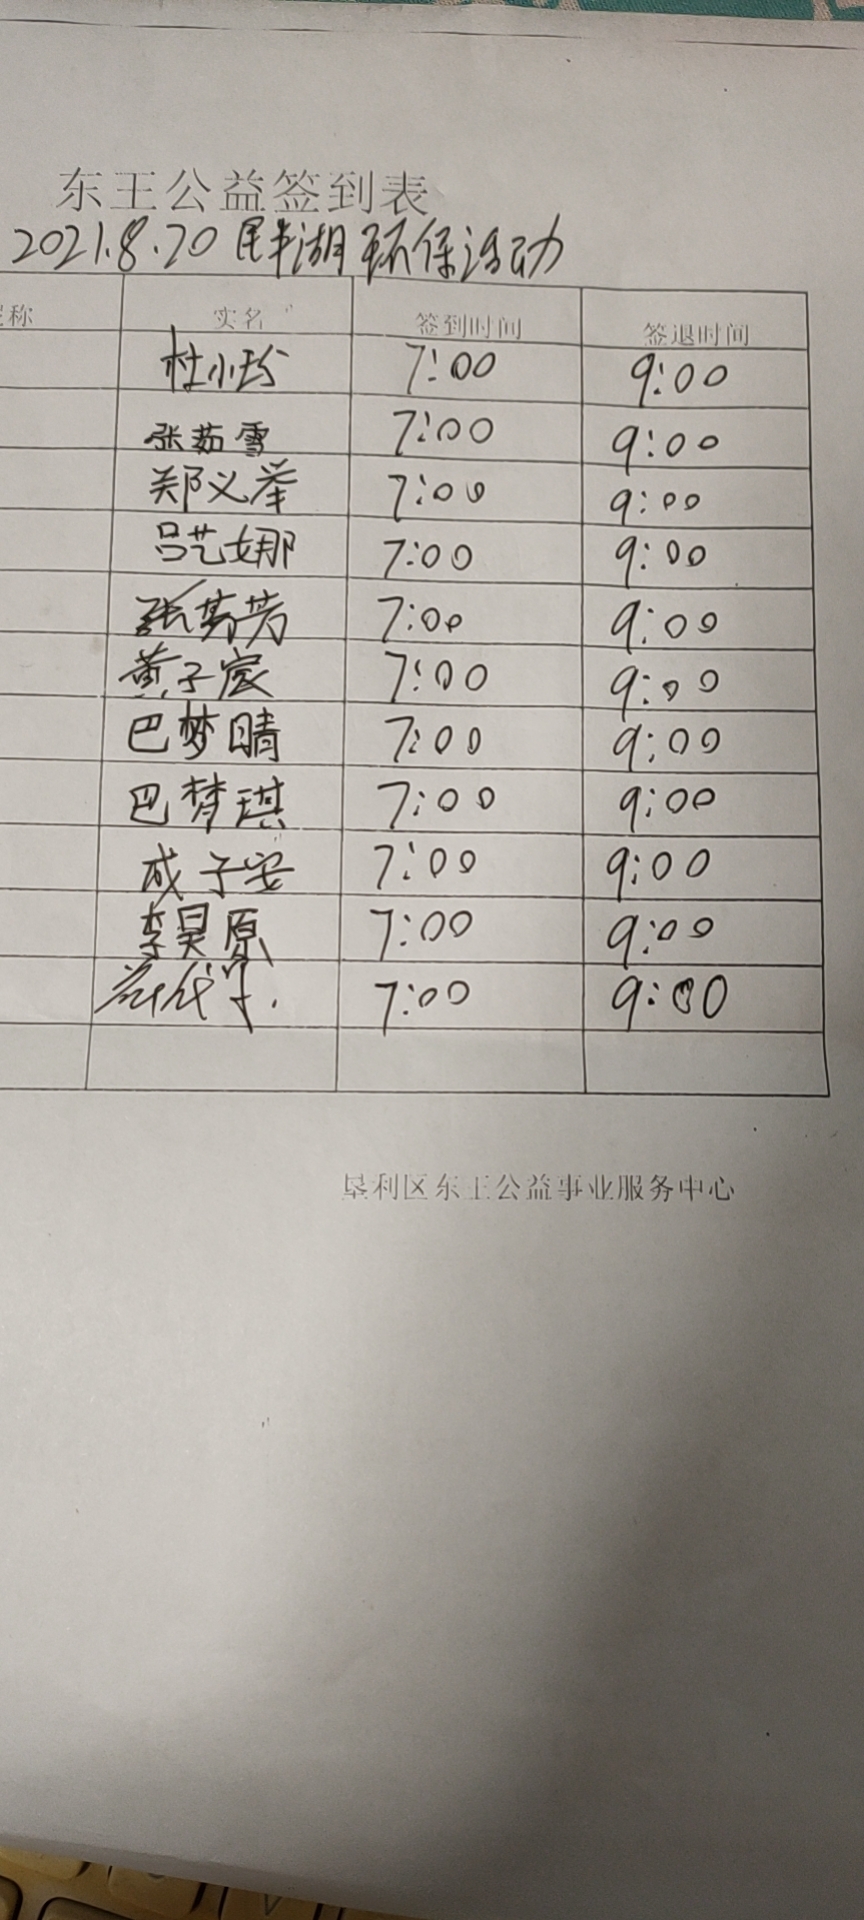 东王公益签到表
2021.8.20 民丰湖环保活动
称 实名 签到时间 签退时间
杜小玲 7:00 9:00
张茹雪 7:00 9:00
郑义举 7:00 9:00
吕艺娜 7:00 9:00
张芳芳 7:00 9:00
黄子宸 7:00 9:00
巴梦晴 7:00 9:00
巴梦琪 7:00 9:00
成子安 7:00 9:00
李昊原 7:00 9:00
7:00 9:00
垦利区东王公益事业服务中心